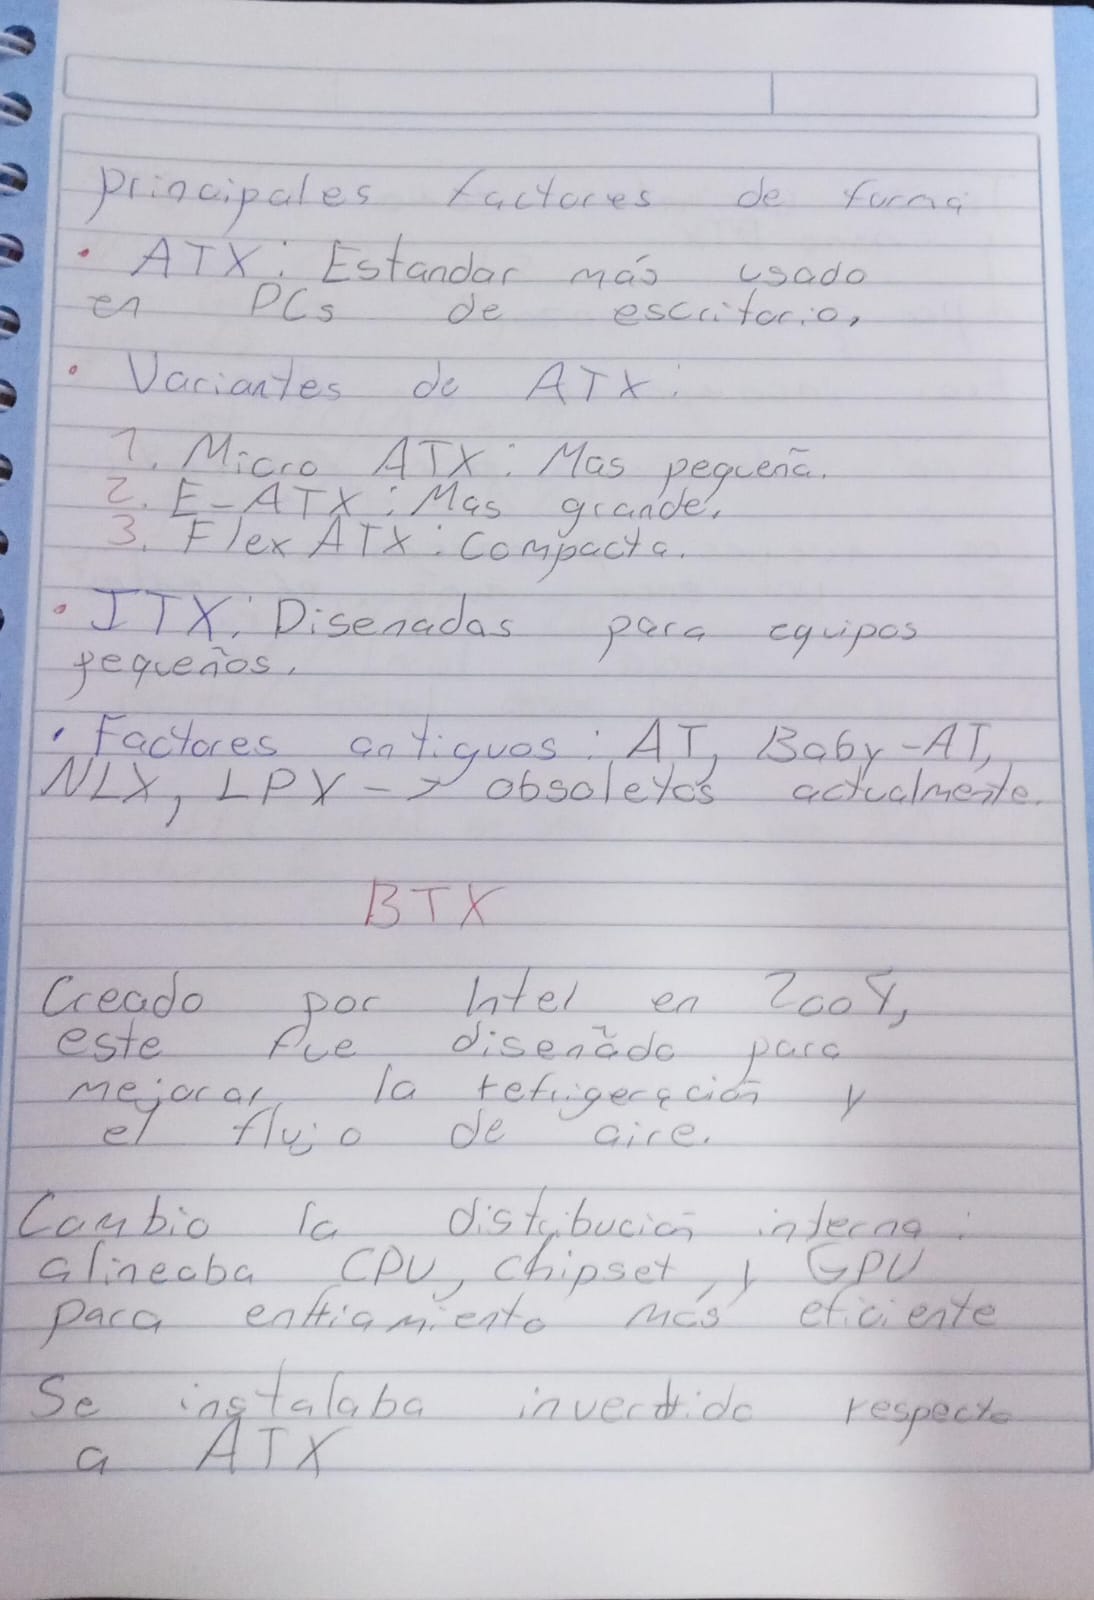 principales factores de forma
• ATX: Estandar más usado
en PCs de escritorio,
• Variantes de ATX:
1. Micro ATX: Mas pequeña.
2. E-ATX: Mas grande.
3. Flex ATX: Compacta.
• ITX: Disenadas para equipos
pequeños.
• Factores antiguos: AT, Baby-AT,
NLX, LPX -> obsoletos actualmente.
BTX
Creado por Intel en 2004,
este fue diseñado para
mejorar la refrigeración y
el flujo de aire.
Cambio la distribución interna:
alineaba CPU, chipset, y GPU
para enfriamiento más eficiente
Se instalaba invertido respecto
a ATX